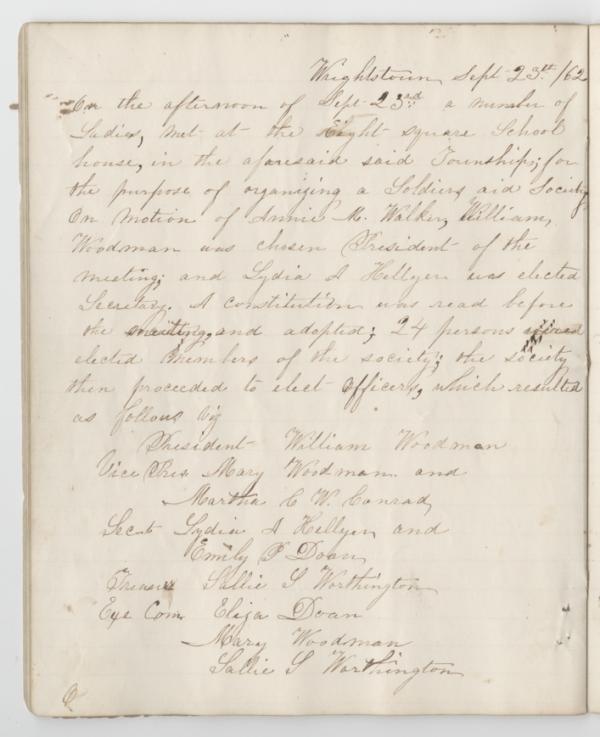 Wrightstown, Sept 23th /62
On the afternoon of Sept 23rd a number of
Ladies, met at the Eight square School
house, in the aforesaid said Township; for
the purpose of organizing a Soldiers aid Society
On Motion of Annie M. Walker, William,
Woodman was chosen President of the
meeting; and Lydia A Hellyer was elected
Secretary. A constitution was read before
the meeting, and adopted; 24 persons were
elected members of the society; the society
then proceeded to elect officers, which resulted
as follows viz
President William Woodman
Vice Pres Mary Woodman and
Martha C. W. Conrad,
Sect Lydia A Hellyer and
Emily P Doan,
Treasure Sallie S Worthington
Exe Com. Eliza Doan
Mary Woodman
Sallie S Worthington